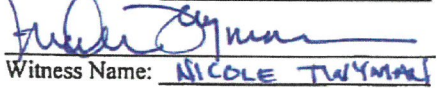 Witness Name: NICOLE TWYMAN